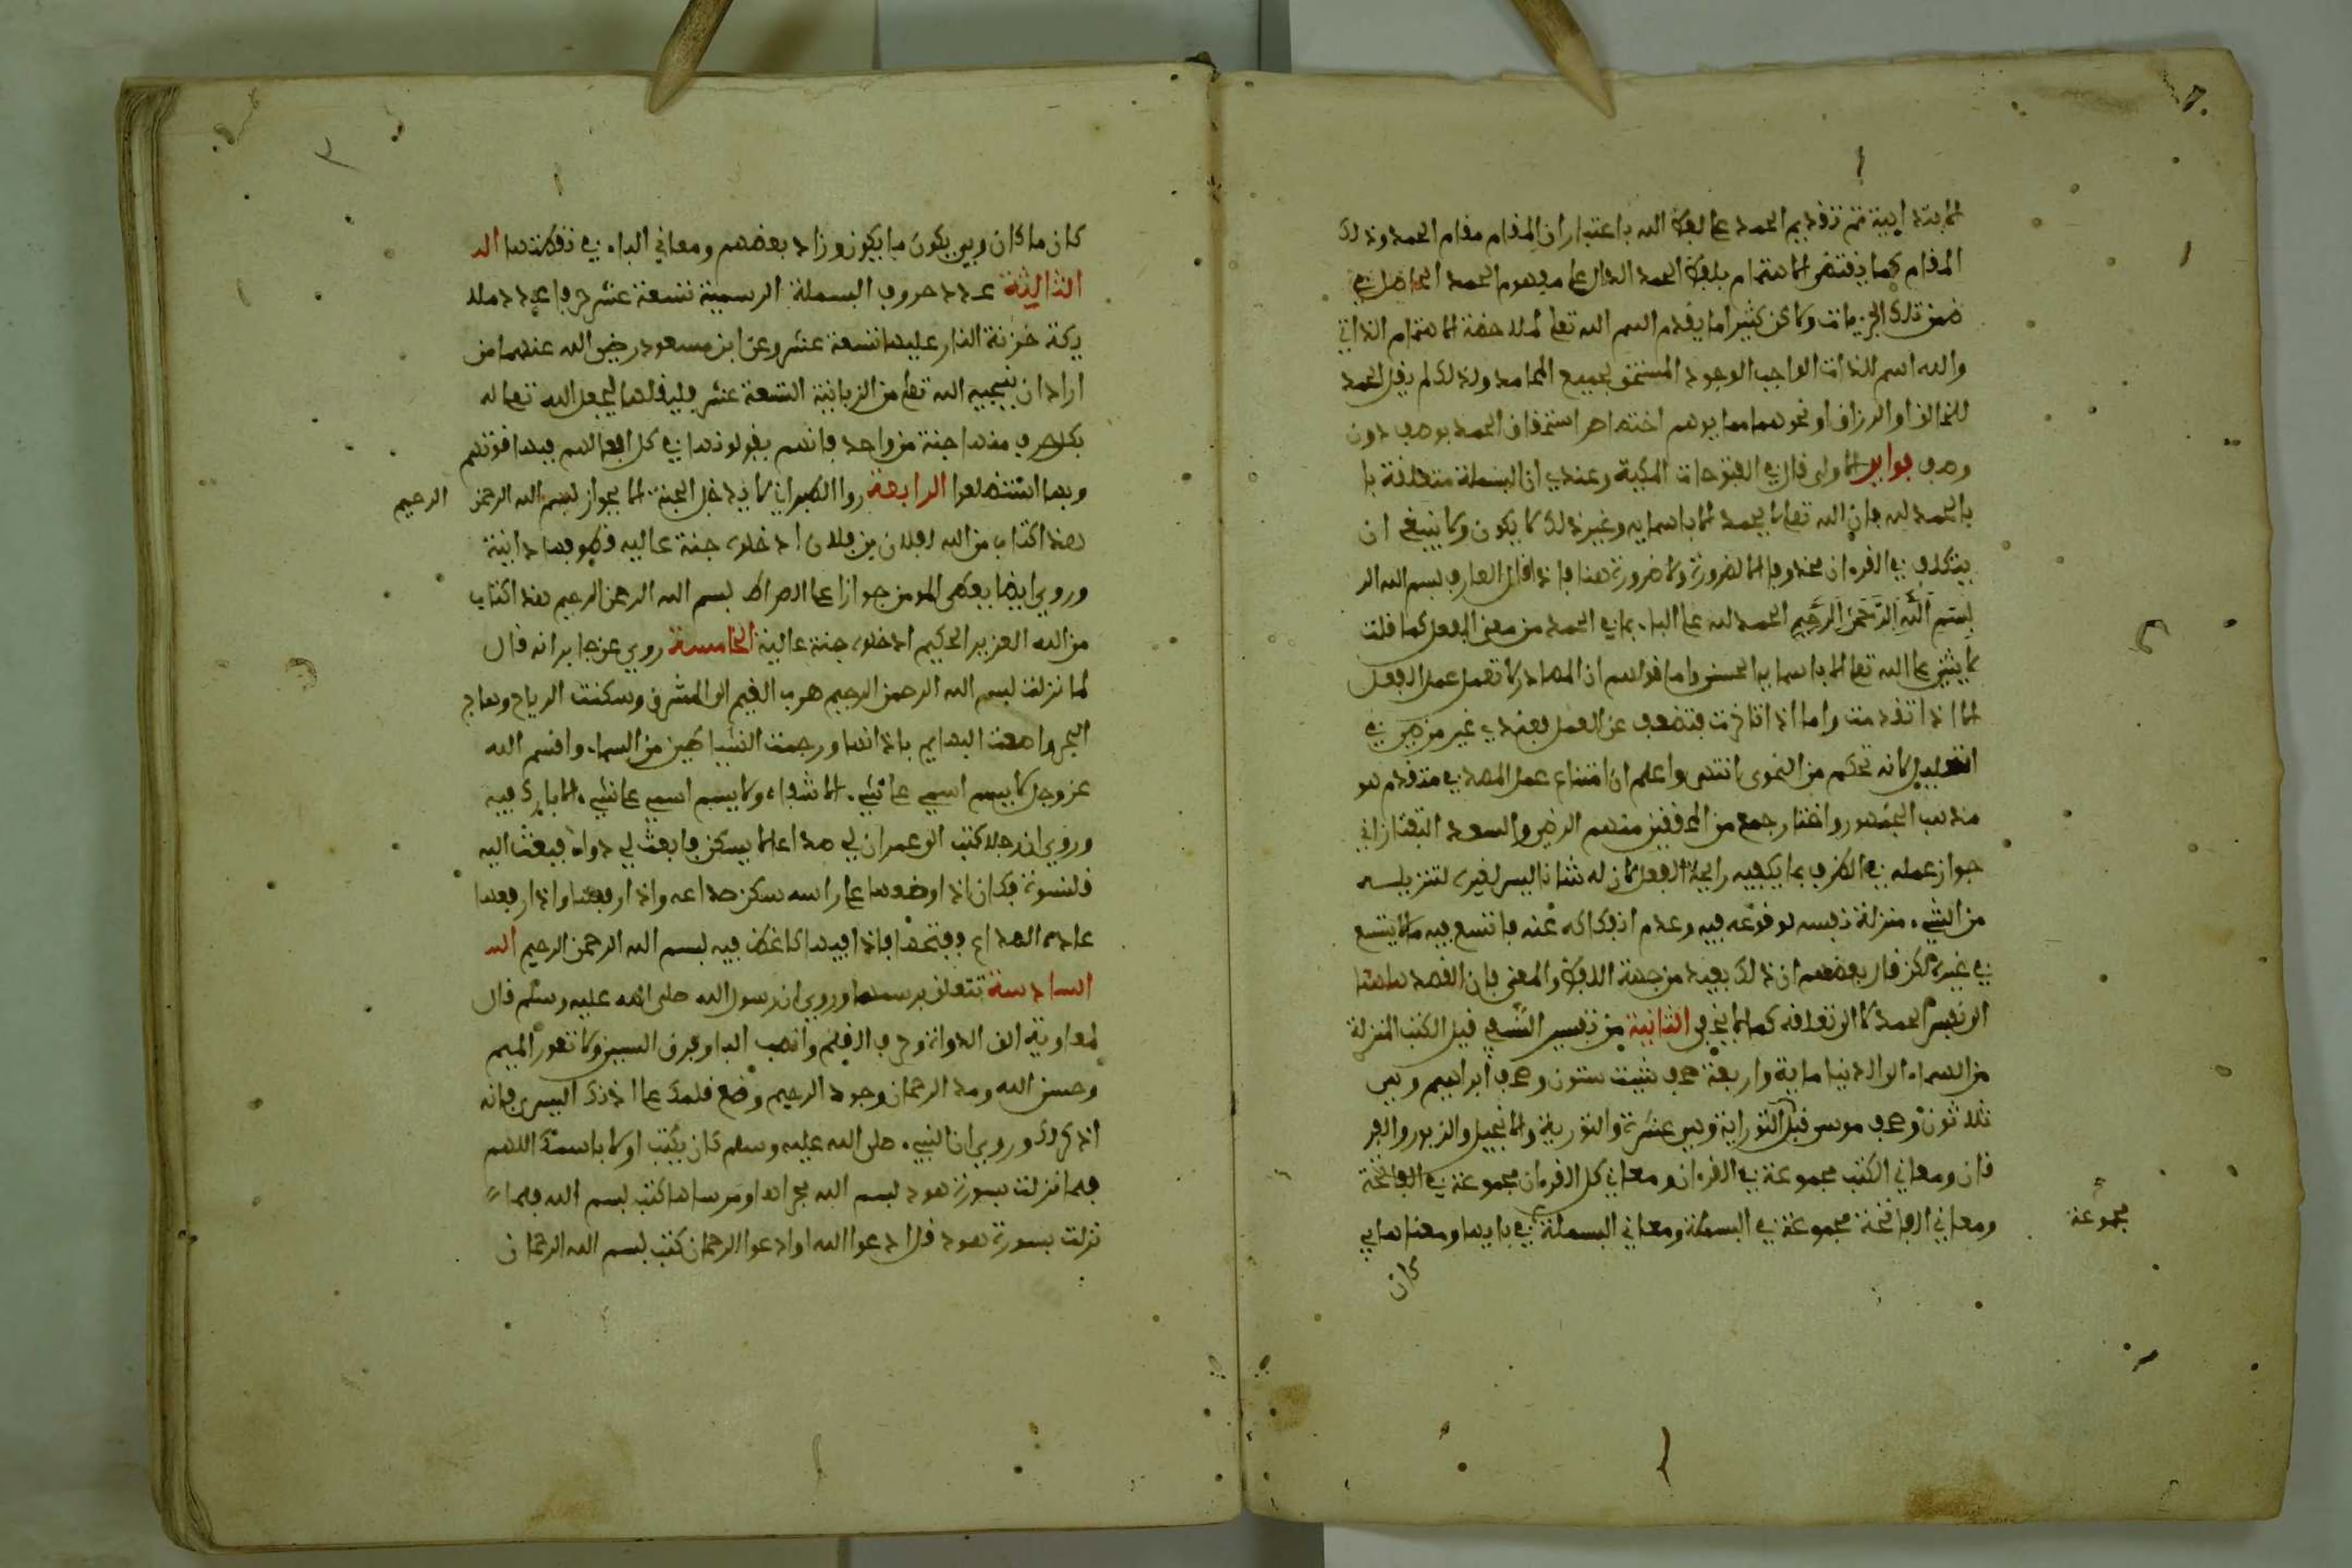 الابتدائية ثم تقديم الحمد على لفظ الله باعتبار ان المقام مقام الحمد وذلك
المقام كما يقتضي الاهتمام بلفظ الحمد الدال على مفهوم الحمد الحاصل في
ضمن تلك الجزئيات ولاكن كثيرا ما يقدم اسم الله تعلى لملاحظة الاهتمام الذاتي
والله اسم للذات الواجب الوجود المستحق لجميع المحامد ولذلك لم يقل الحمد
للخالق او الرزاق او نحوهما مما يوهم اختصاص استحقاق الحمد بوصف دون
وصف فوايد الاولى قال في الفتوحات المكية وعندي ان البسملة متعلقة با
بالحمد لله فان الله تعلى لا يحمد الا باسمايه وغير ذلك لا يكون ولا ينبغي ان
يتكلف في القرءان محذوفا الا لضرورة ولا ضرورة هنا فاذا قال العارف بسم الله الر
بسم الله الرحمن الرحيم الحمد لله على الباء بما في الحمد من معنى الفعل كما قلت
لا يثنى على الله تعلى الا باسمايه الحسنى واما قولهم ان المصادر لا تعمل عمل الفعل
الا اذا تقدمت واما اذا تاخرت فتضعف عن العمل فعندي غير مرضي في
التعليل لانه تحكم من النحوى انتهى واعلم ان امتناع عمل المصدر في متقدم هو
مذهب الجمهور واختار جمع من المحققين منهم الرضي والسعد التفتازاني
جواز عمله في الظرف بما يكفيه رايحة الفعل لان له شانا ليس لغيره لتنزيله
من الشيء منزلة نفسه لوقوعه فيه وعدم انفكاكه عنه فاتسع فيه ما لا يتسع
في غيره لكن قال بعضهم ان ذلك بعيد من جهة اللفظ والمعنى فان القصد هاهنا
الى نفس الحمد لا الى تعلقه كما لا يخفى الثانية من تفسير النسفي قيل الكتب المنزلة
من السماء الى الدنيا ماية واربعة صحف شيت ستون وصحف ابراهيم وهي
ثلاثون وصحف موسى قبل التوراية وهي عشرة والتورية والانجيل والزبور والفر
قان ومعاني الكتب مجموعة في القرءان ومعاني كل القرءان مجموعة في الفاتحة
ومعاني الفاتحة مجموعة في البسملة ومعاني البسملة في بايها ومعناها بي
مجموعة
كان
٣
كان ما كان وبي يكون ما يكون وزاد بعضهم ومعاني الباء في نقطتها ال
الثالثة عدد حروف البسملة الرسمية تسعة عشر حرفا عدد ملا
يكة خزنة النار عليها تسعة عشر وعن ابن مسعود رضي الله عنهما من
اراد ان ينجيه الله تعلى من الزبانية التسعة عشر فليقلها ليجعل الله تعلى له
بكل حرف منها جنة من واحد فانهم يقولونها في كل افعالهم فبها قوتهم
وبها استضلعوا الرابعة روا الطبراني لا يدخل الجنة الا بجواز بسم الله الرحمن
الرحيم
هذا كتاب من الله لفلان بن فلان ادخلوه جنة عالية قطوفها دانية
وروي ايضا يعطى المومن جوازا على الصراط بسم الله الرحمن الرحيم هذا كتاب
من الله العزيز الحكيم ادخلوه جنة عالية الخامسة روي عن جابر انه قال
لما نزلت بسم الله الرحمن الرحيم هرب الغيم الى المشرق وسكنت الرياح وهاج
البحر واصغت البهايم باذانها ورجمت الشياطين من السماء واقسم الله
عز وجل لا يسم اسمي على شيء الا شفاه ولا يسم اسمي على شيء الا بارك فيه
وروي ان رجلا كتب الى عمر ان لي صداعا لا يسكن فابعث لي دواء فبعث اليه
قلنسوة فكان اذا وضعها على راسه سكن صداعه واذا رفعها واذا رفعها
عاده الصداع ففتحها فاذا فيها كاغظ فيه بسم الله الرحمن الرحيم ال
السادسة تتعلق برسمها وروي ان رسول الله صلى الله عليه وسلم قال
لمعاوية الق الدواة وحرف القلم وانصب الباء وفرق السين ولا تعور الميم
وحسن الله ومد الرحمان وجود الرحيم وضع قلمك على اذنك اليسرى فانه
اذكر لك وروي ان النبيء صلى الله عليه وسلم كان يكتب اولا باسمك اللهم
فلما نزلت بسورة هود بسم الله مجراها ومرساها كتب بسم الله فلما
نزلت بسورة هود قل ادعوا الله او ادعوا الرحمان كتب بسم الله الرحمان